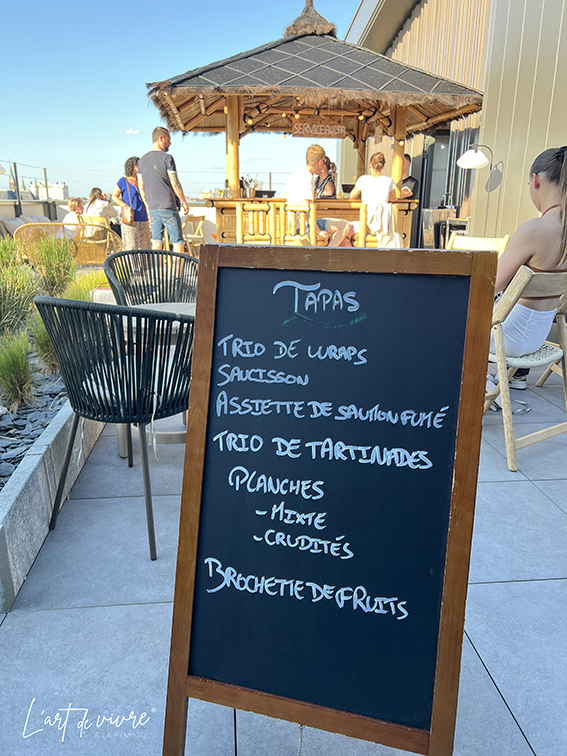 SERVICE AU BAR
TAPAS
TRIO DE WRAPS
SAUCISSON
ASSIETTE DE SAUMON FUMÉ
TRIO DE TARTINADES
PLANCHES
- MIXTE
- CRUDITÉS
BROCHETTE DE FRUITS
L'art de vivre
À LA RÉMOISE